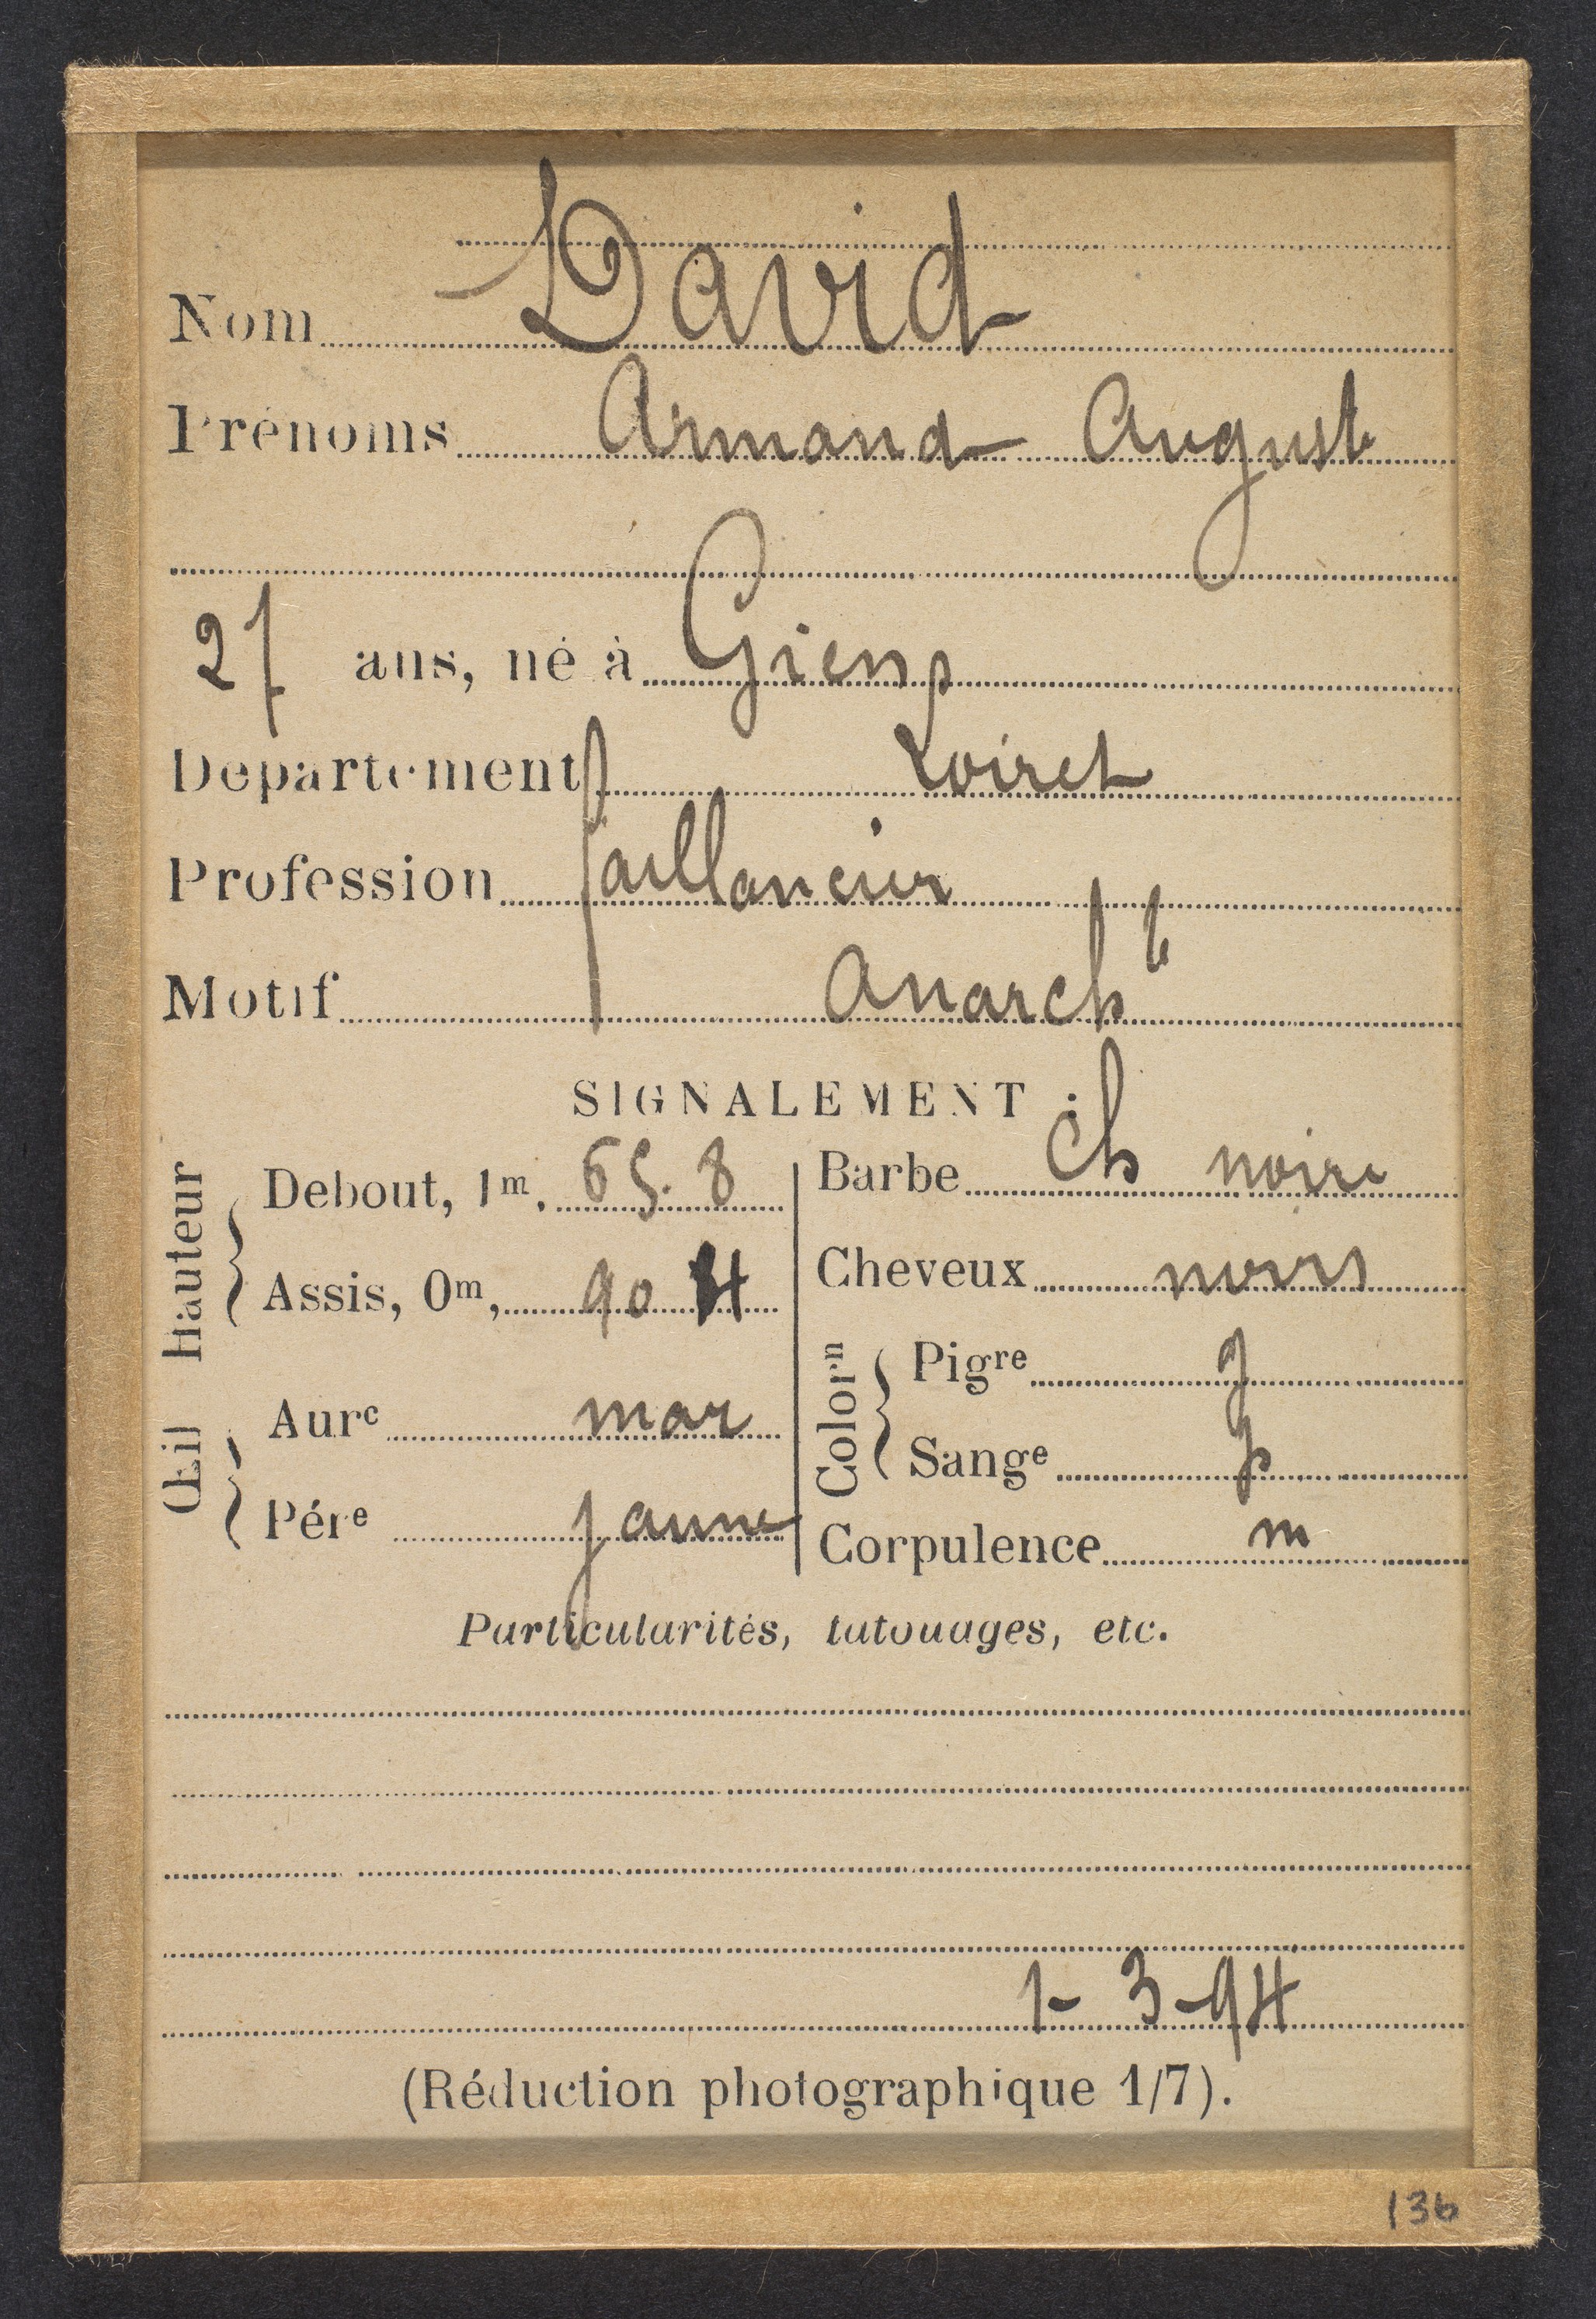 Nom David
Prénoms Armand August
27 ans, né à Gien
Département Loiret
Profession faillancier
Motif Anarchte
SIGNALEMENT
Hauteur
Debout, 1m, 65.8
Assis, 0m, 90 4
Œil
Aurc mar
Pére jaune
Barbe ch noire
Cheveux noirs
Colorn
Pigre g
Sange g
Corpulence m
Particularités, tatouages, etc.
1-3-94
(Réduction photographique 1/7).
136